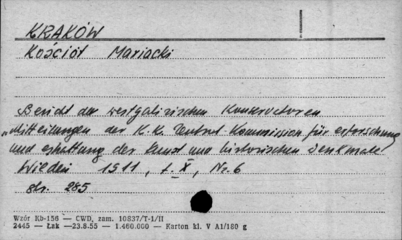 KRAKÓW
Kościół Mariacki
Bericht der westgalizischen Konservatoren
"Mitteilungen der K.K. Zentral-Kommission für erforschung
und erhaltung der Kunst und historischen Denkmale"
Wiedeń 1911, t. X, Nr. 6
str. 285
Wzór Kb-156 — CWD, zam. 10837/T-1/II
2445 — Łak —23.8.55 — 1.460.000 — Karton kl. V A1/180 g